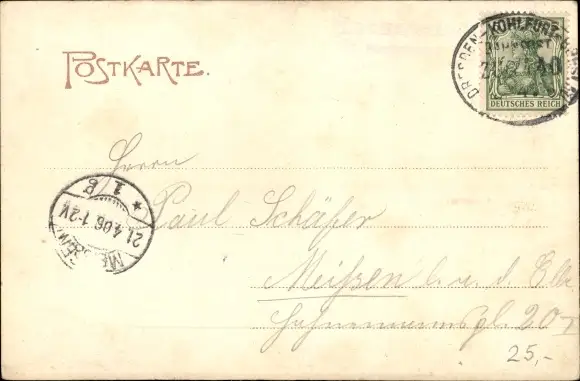 POSTKARTE.
DRESDEN-KOHLFURT
BAHNPOST
ZUG
DEUTSCHES REICH
Herrn
Paul Schäfer
Meißen b. u. d. Elbe
20 I
MEISSEN
21.4.06. 1-2V.
* 1 B
25,-